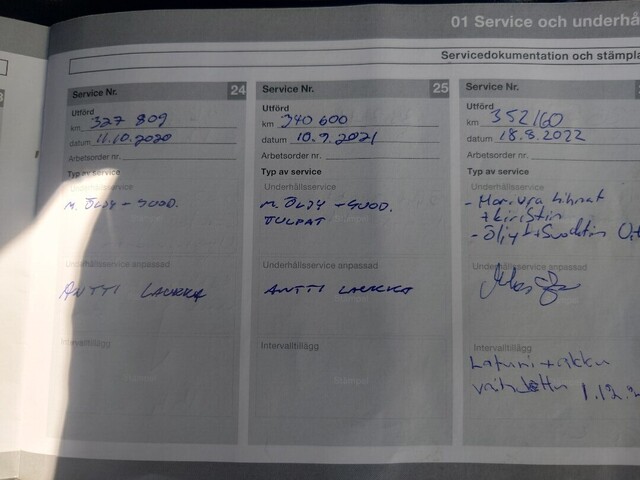 01 Service och underhå
Servicedokumentation och stämpla
Service Nr. 24
Utförd
km 327 809
datum 11.10.2020
Arbetsorder nr.
Typ av service
Underhållsservice
M. ÖLJY - SUOD.
Underhållsservice anpassad
ANTTI LAUKKA
Intervalltillägg
Service Nr. 25
Utförd
km 340 600
datum 10.9.2021
Arbetsorder nr.
Typ av service
Underhållsservice
M. ÖLJY - SUOD.
TULPAT
Underhållsservice anpassad
ANTTI LAUKKA
Intervalltillägg
Service Nr.
Utförd
km 352160
datum 18.8.2022
Arbetsorder nr.
Typ av service
Underhållsservice
- Moniura hihnat
+ kiristin
- Öljyt + Suodatin
Underhållsservice anpassad
Intervalltillägg
Laturi + akku
vaihdettu 1.12.2